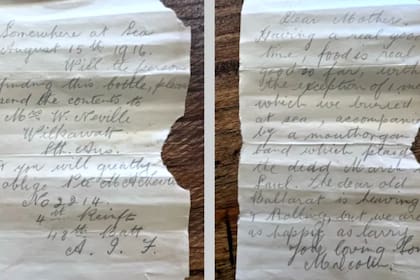 Somewhere at Sea
August 15th 1916.
Will the person
finding this bottle, please
send the contents to
Mrs W. Neville
Wilkawatt
Sth Aus.
& you will greatly
oblige Pte
No 2214.
4th Reinft
48th Batt
A. I. F.
Dear Mother
Having a real good
time, food is real
good so far, with
the exception of 1 meal
which we buried
at sea, accompanied
by a mouthorgan
band which played
the dead March
Saul. The dear old
Ballarat is heaving
& Rolling, but we are
as happy as larry
Your loving son
Malcolm.